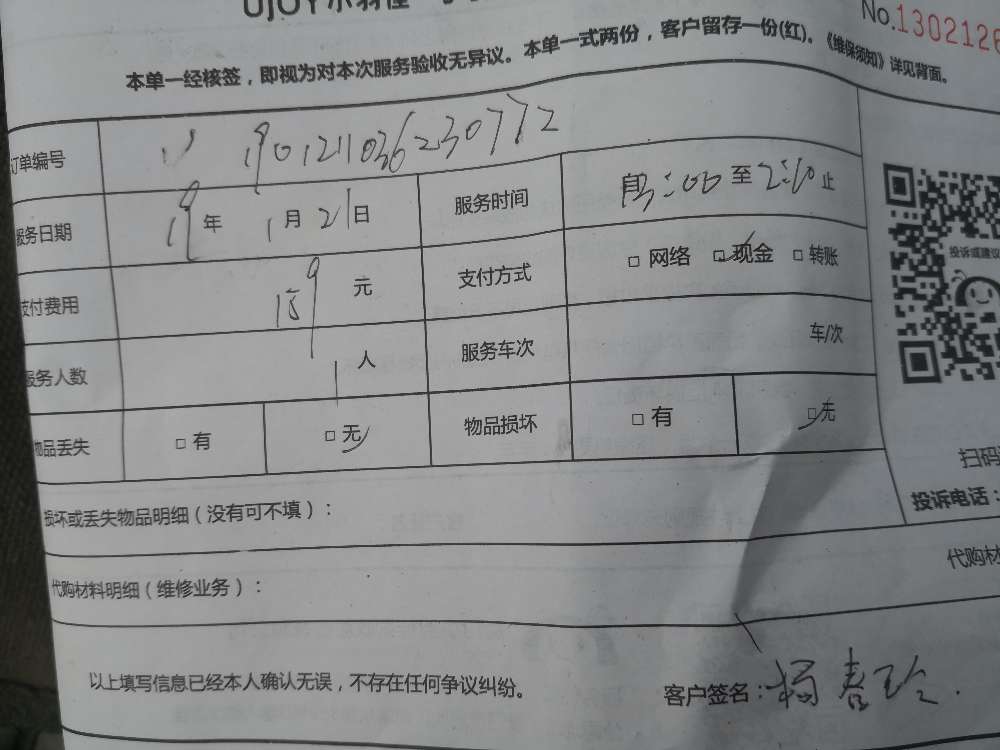 UJOY小羽佳
No.1302126
本单一经核签，即视为对本次服务验收无异议。本单一式两份，客户留存一份(红)。《维保须知》详见背面。
订单编号 1901211036230772
服务日期 19年 1月 21日 服务时间 自 :00 至 2:10 止
支付费用 159 元 支付方式 □ 网络 □ 现金 □ 转账
服务人数 1 人 服务车次 车/次
物品丢失 □ 有 □ 无 物品损坏 □ 有 □ 无
投诉或建议
扫码
投诉电话：
损坏或丢失物品明细（没有可不填）：
代购材料明细（维修业务）：
代购材
以上填写信息已经本人确认无误，不存在任何争议纠纷。
客户签名：杨春玲